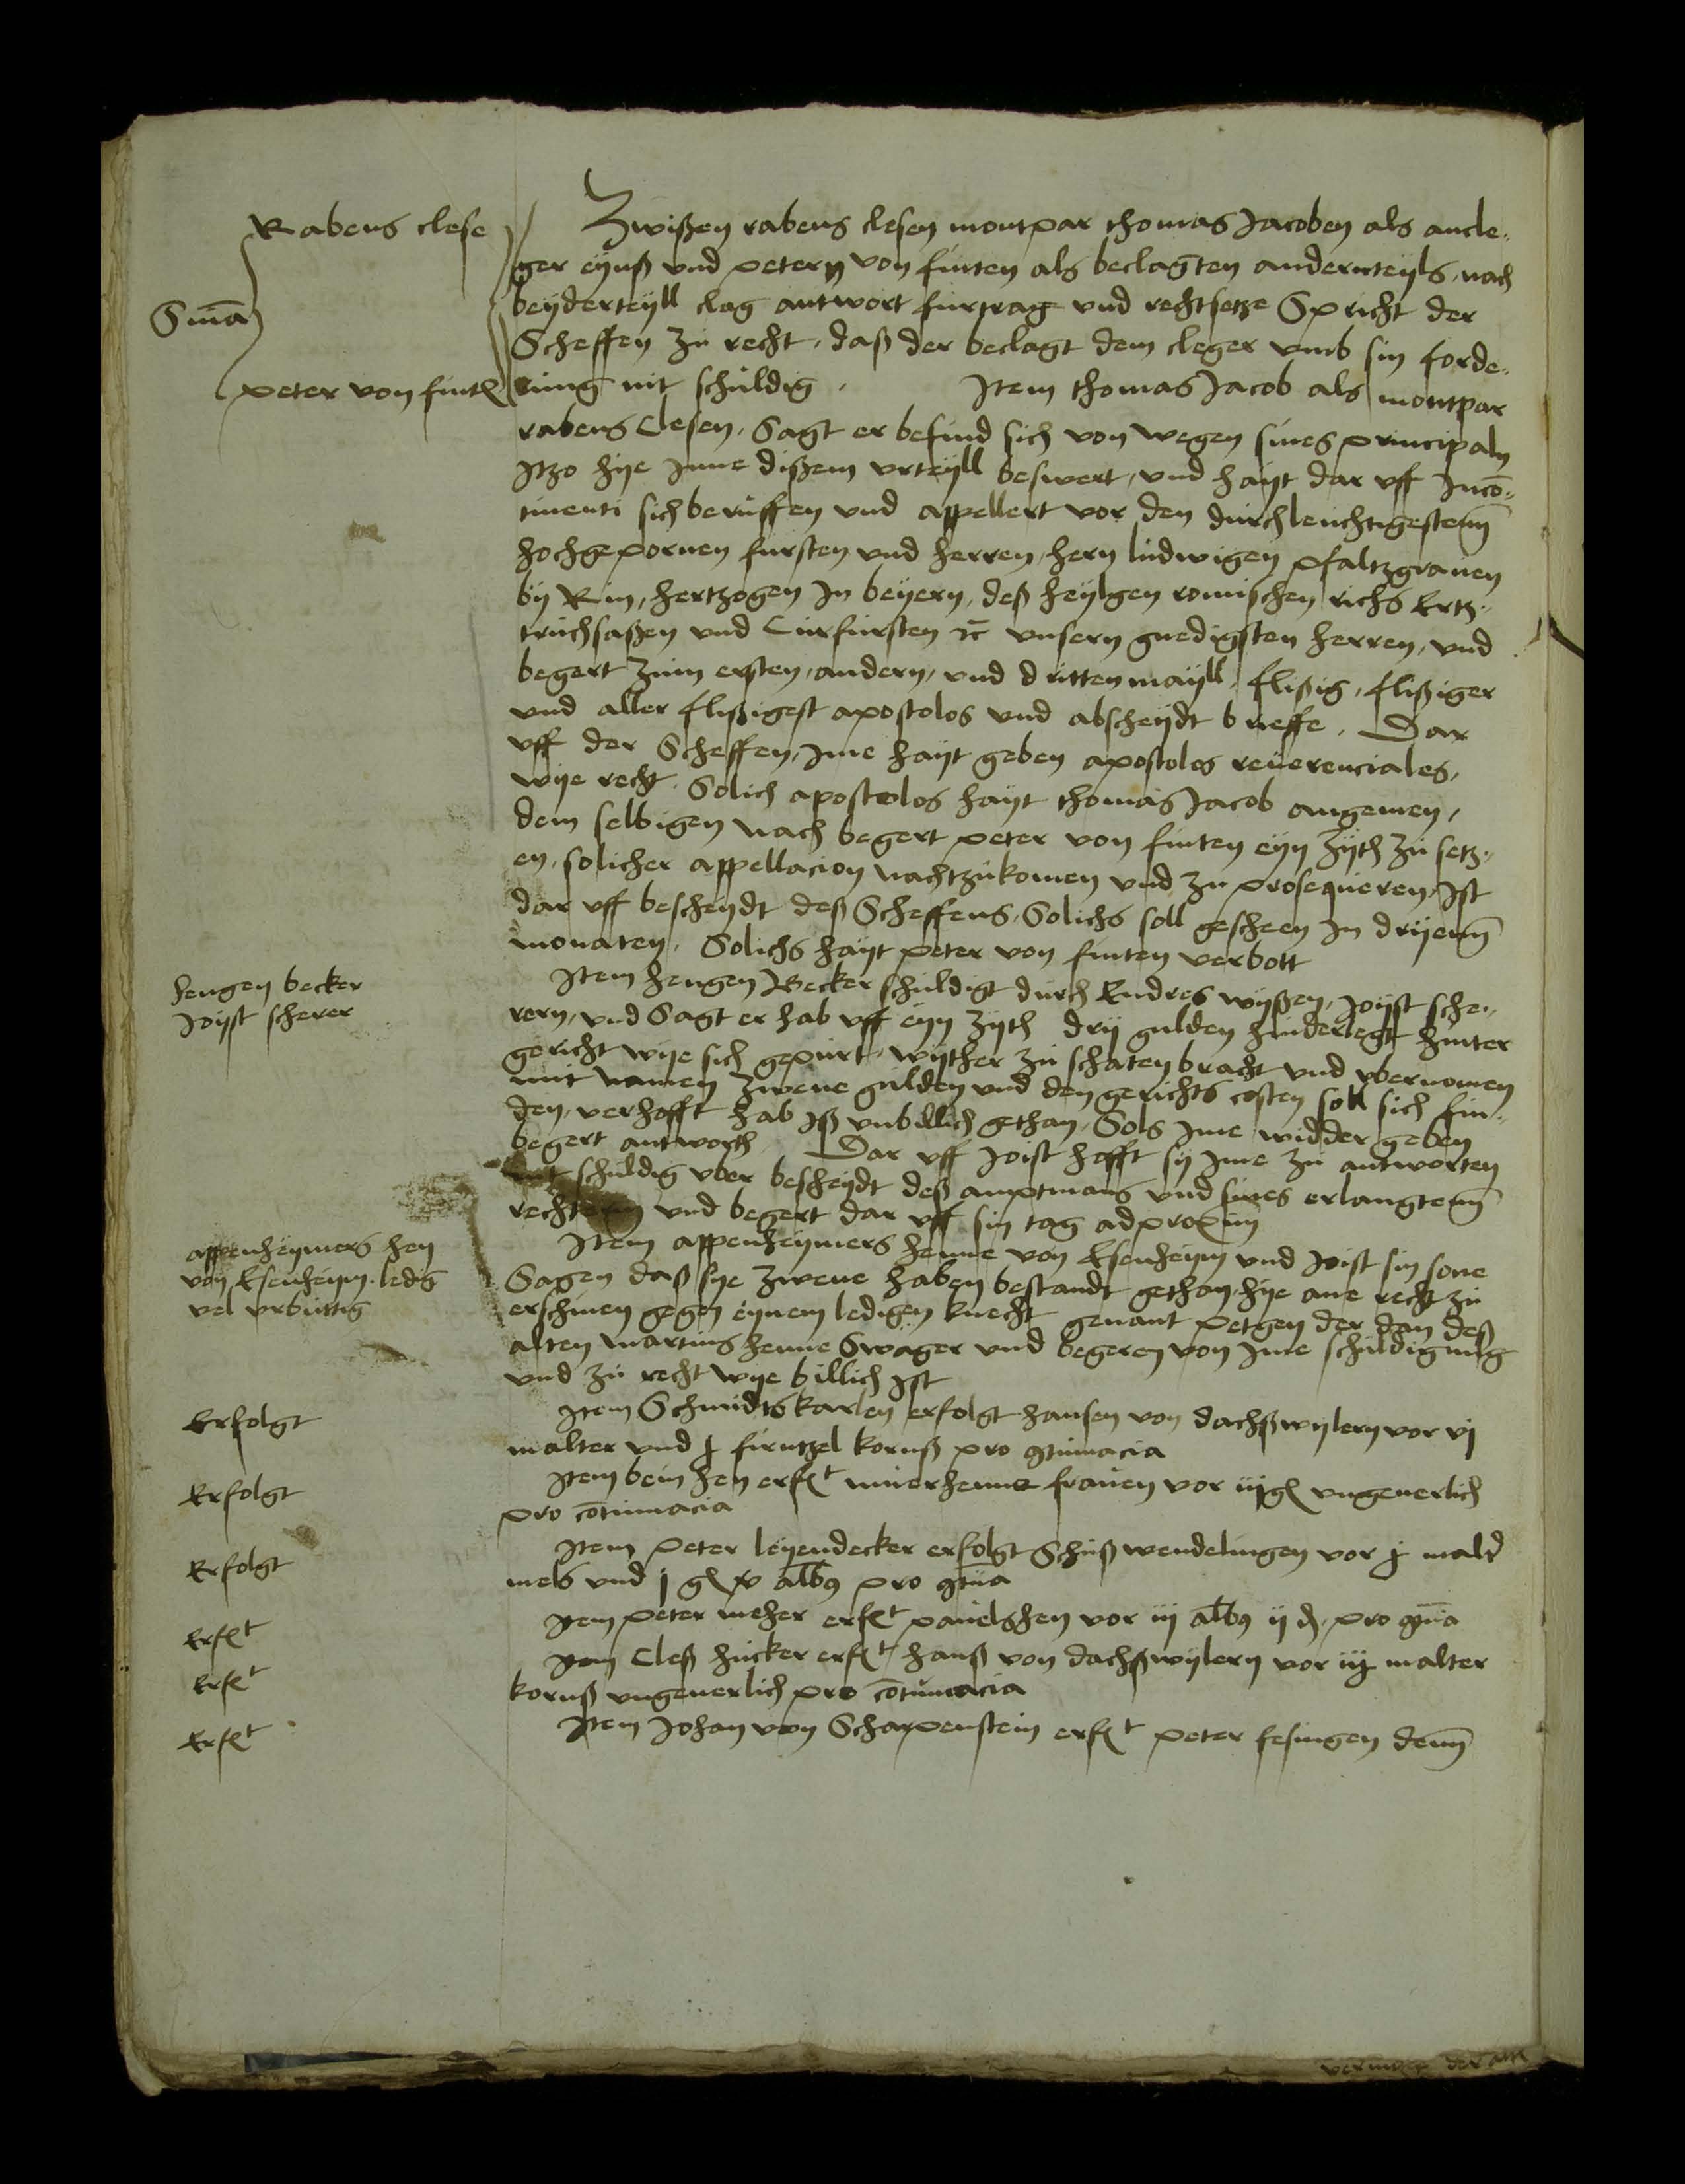 Rabens clese
Sma
peter von fint
Zwißen rabens clesen montpar thomas Jacoben als ancle¬
ger eynß vnd petern von finten als beclagten anderteyls, nach
beyderteyll clag antwort furtrage vnd rechtsetze Spricht der
Scheffen zu recht, daß der beclagt dem cleger vmb sin forde¬
rung nit schuldig. Item thomas Jacob als montpar
rabens Clesen, Sagt er befind sich von wegen sines principaln
Itzo hye Inne dißem vrteyll beswert, vnd hayt dar vff Inco¯¬
tinenti sich beruffen vnd appellert vor den durchleuchtigesten
hochgepornen fursten vnd herren, hern ludwigen pfaltzgrauen
by Rin, hertzogen In beyern, deß heylgen romischen richs Ertz¬
truchsaßen vnd Curfursten ꝛc vnsern gnedigsten herren, vnd
begert zum ersten, andern, vnd dritten mayll, flißig, flißiger
vnd aller flißigest apostolos vnd abscheydt brieffe. Dar
vff der Scheffen, Ime hayt geben apostolos reuerenciales,
wye recht. Solich apostolos hayt thomas Jacob angemen,
dem selbigen nach begert peter von finten eyn zyth zu setz¬
en, solicher appellacion nachtzukomen vnd zu prosequeren, Ist
dar vff bescheydt deß Scheffens, Solichs soll gescheen In dryen
monaten. Solichs hayt peter von finten verbott
hengen becker
Joyst scherer
Item hengen Becker schuldigt durch Endres wyßen, Joyst sche¬
rern, vnd Sagt er hab vff eyn zyth dry gulden hinderlegt hinter
gericht wye sich gepurt, wyther zu schaten bracht vnd vbernomen
mit namen zwene gulden vnd den gerichts costen soll sich fin¬
den, verhofft hab Iß vnbillich gethan, Sols Ime widder geben
begert antworth. Dar vff Joist hofft sy Ime zu antworten
nit schuldig vber bescheydt deß amptmans vnd sines erlangten
rechten vnd begert dar vff sin tag ad proxim
appenheymers hen
von Esenheym. ledig
vel vrbuttig
Item appenheymers henne von Esenheym vnd Joist sin sone
Sagen daß sye zwene haben bestandt gethan, hye ane recht zu
erschinen gegen eynem ledigen knecht genant petgen der dan deß
alten martins henne Swager vnd begeren von Ime schuldigung
vnd zu recht wye billich Ist
Erfolgt
Item Schmidts karlen erfolgt hansen von dachßwylern vor vj
malter vnd j firntzel kornß pro 9tumacia
Erfolgt
Item bein hen erft mierhenne frauen vor iij gl vngeuerlich
pro co¯tumacia
Erfolgt
Item peter leyendecker erfolgt Schuß wendelingen vor j mald
mels vnd j gl xv alb9 pro 9tu¯a
Erft
Item peter meher erft pauelshen vor iij alb9 ij ₰, pro 9tu¯a
Erft
Item Cleß hucker erft hanß von dachßwylern vor iij malter
kornß vngeuerlich pro co¯tumacia
Erft
Item Johan von Scharpenstein erft peter fesingen den